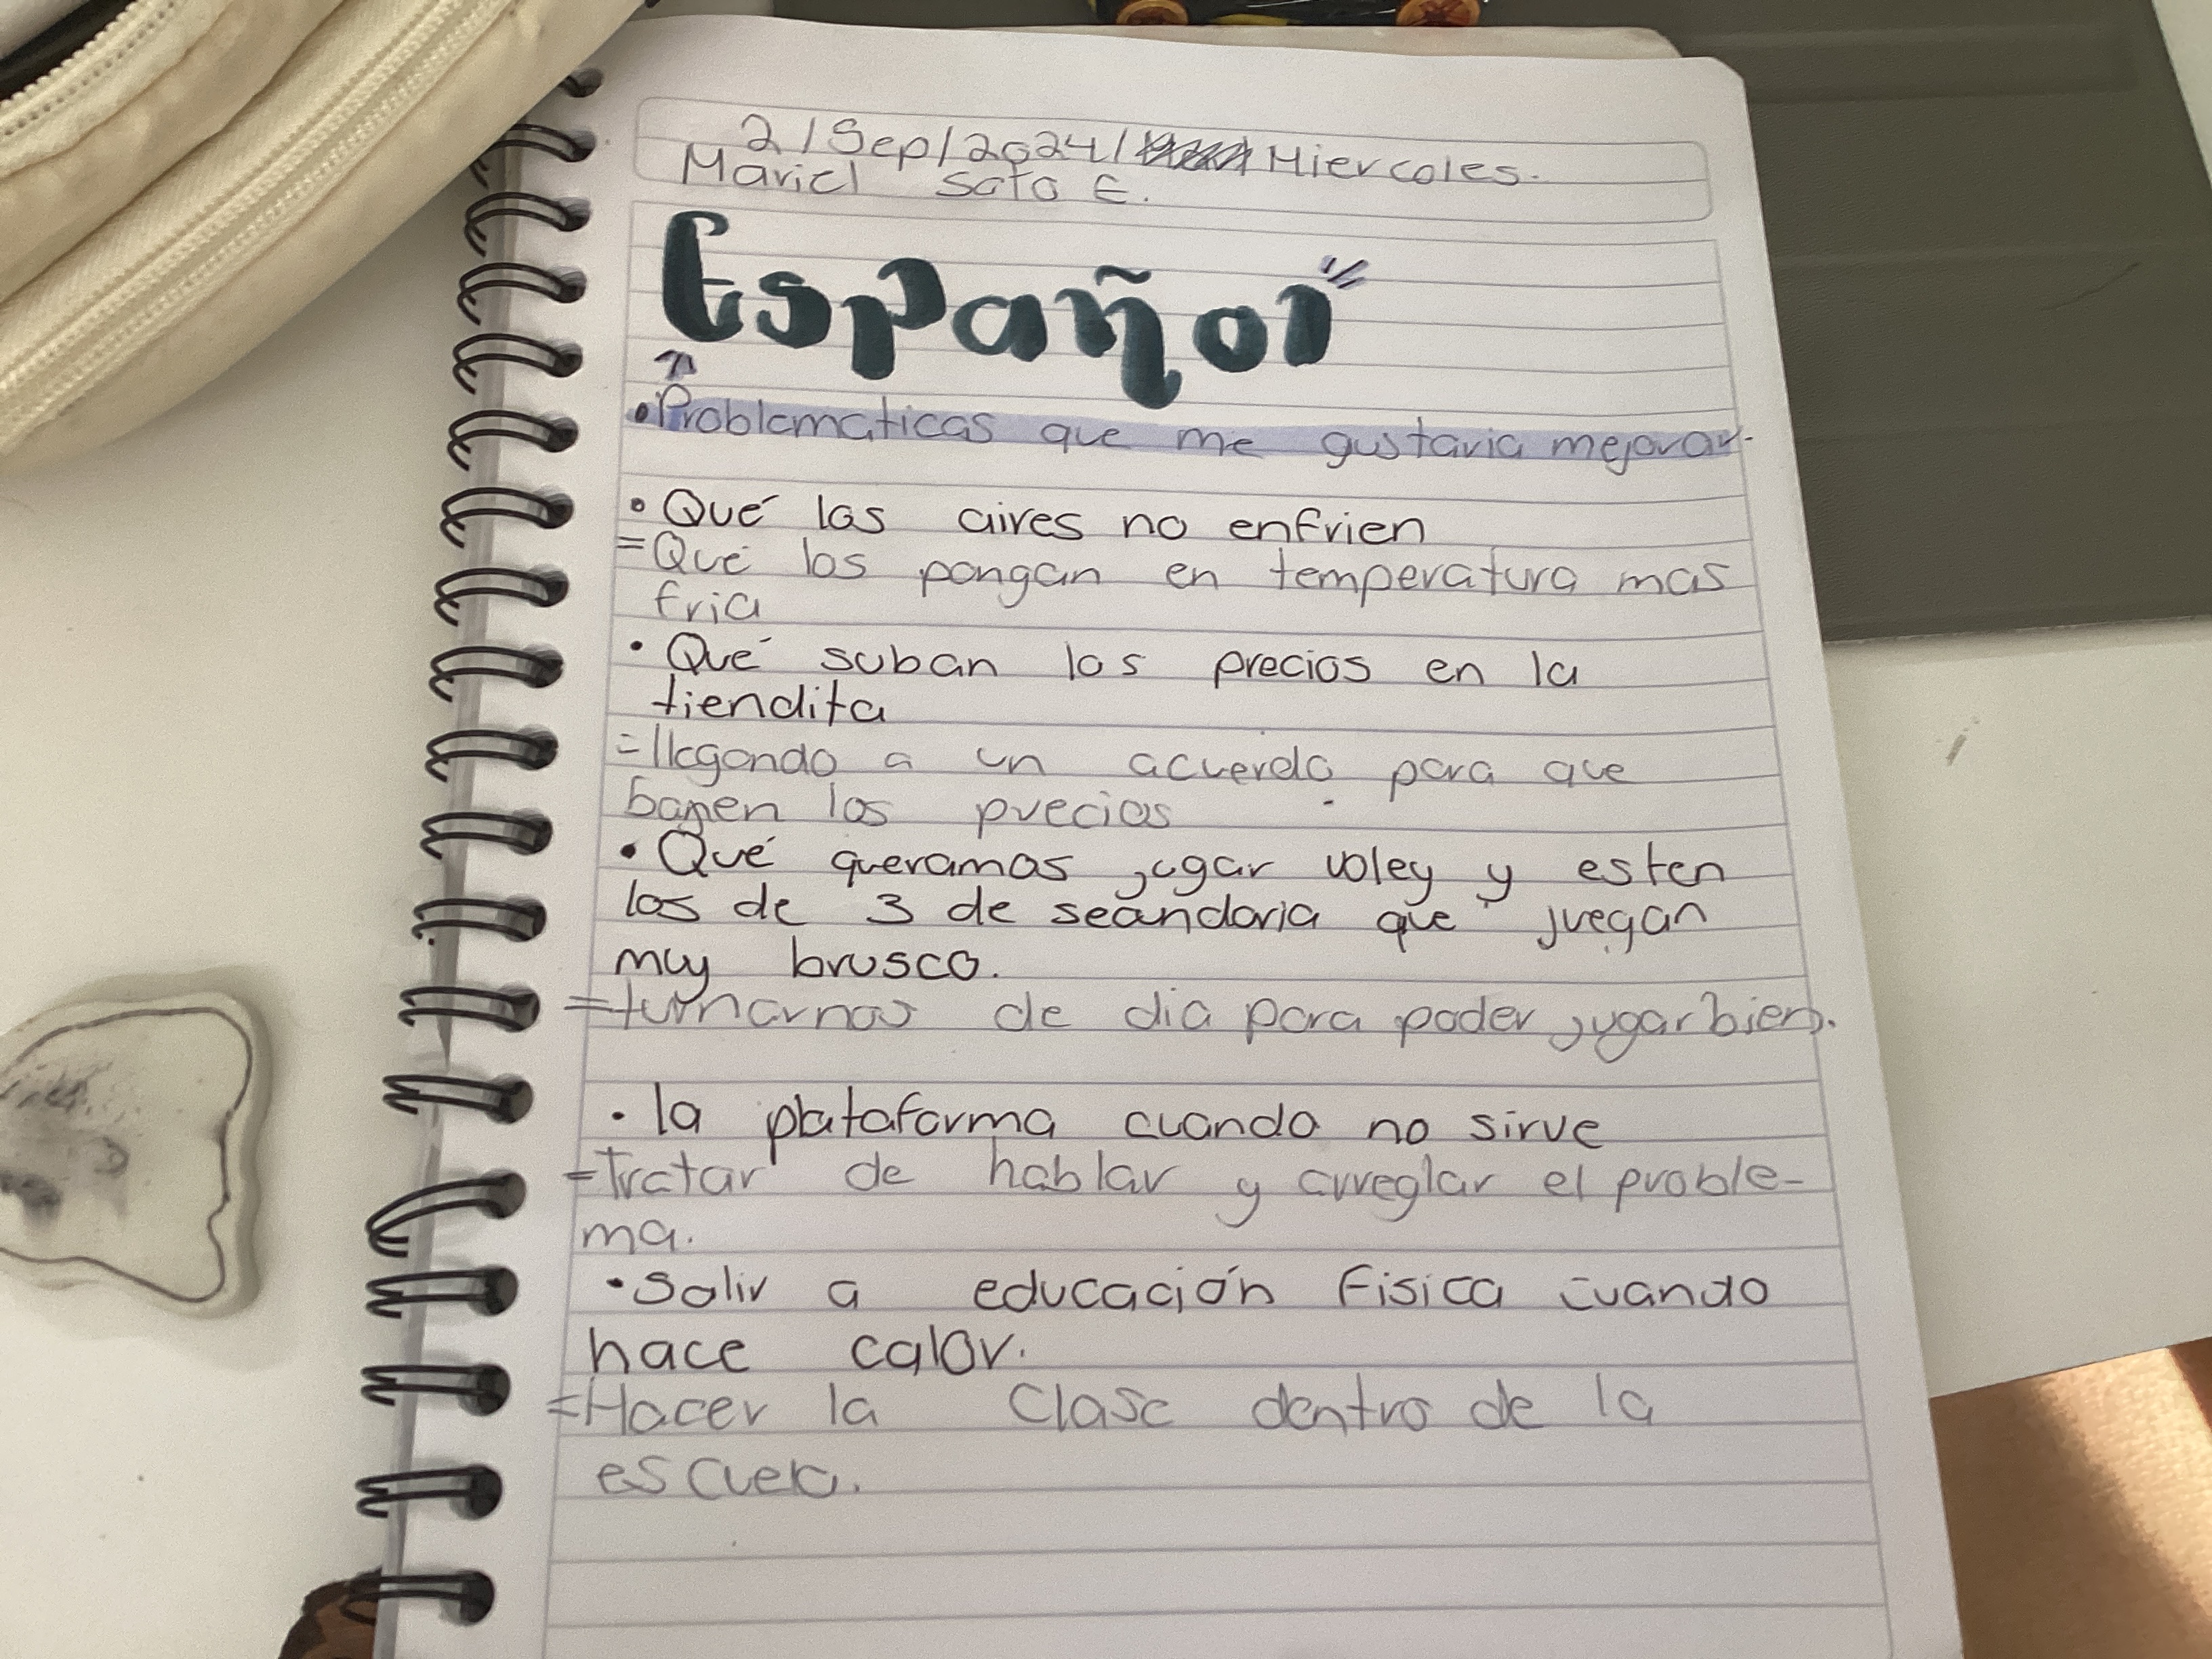 2/Sep/2024/ Miercoles.
Mariel Soto E.
Español
•Problematicas que me gustaria mejorar.
• Qué los aires no enfrien
=Que los pongan en temperatura mas
fria
• Qué suban los precios en la
tiendita
=llegando a un acuerdo para que
bajen los precios
• Qué queramos jugar voley y esten
los de 3 de secundaria que juegan
muy brusco.
=turnarnos de dia para poder jugar bien.
• la plataforma cuando no sirve
=Tratar de hablar y arreglar el proble-
ma.
• Salir a educación Fisica cuando
hace calor.
=Hacer la Clase dentro de la
escuela.